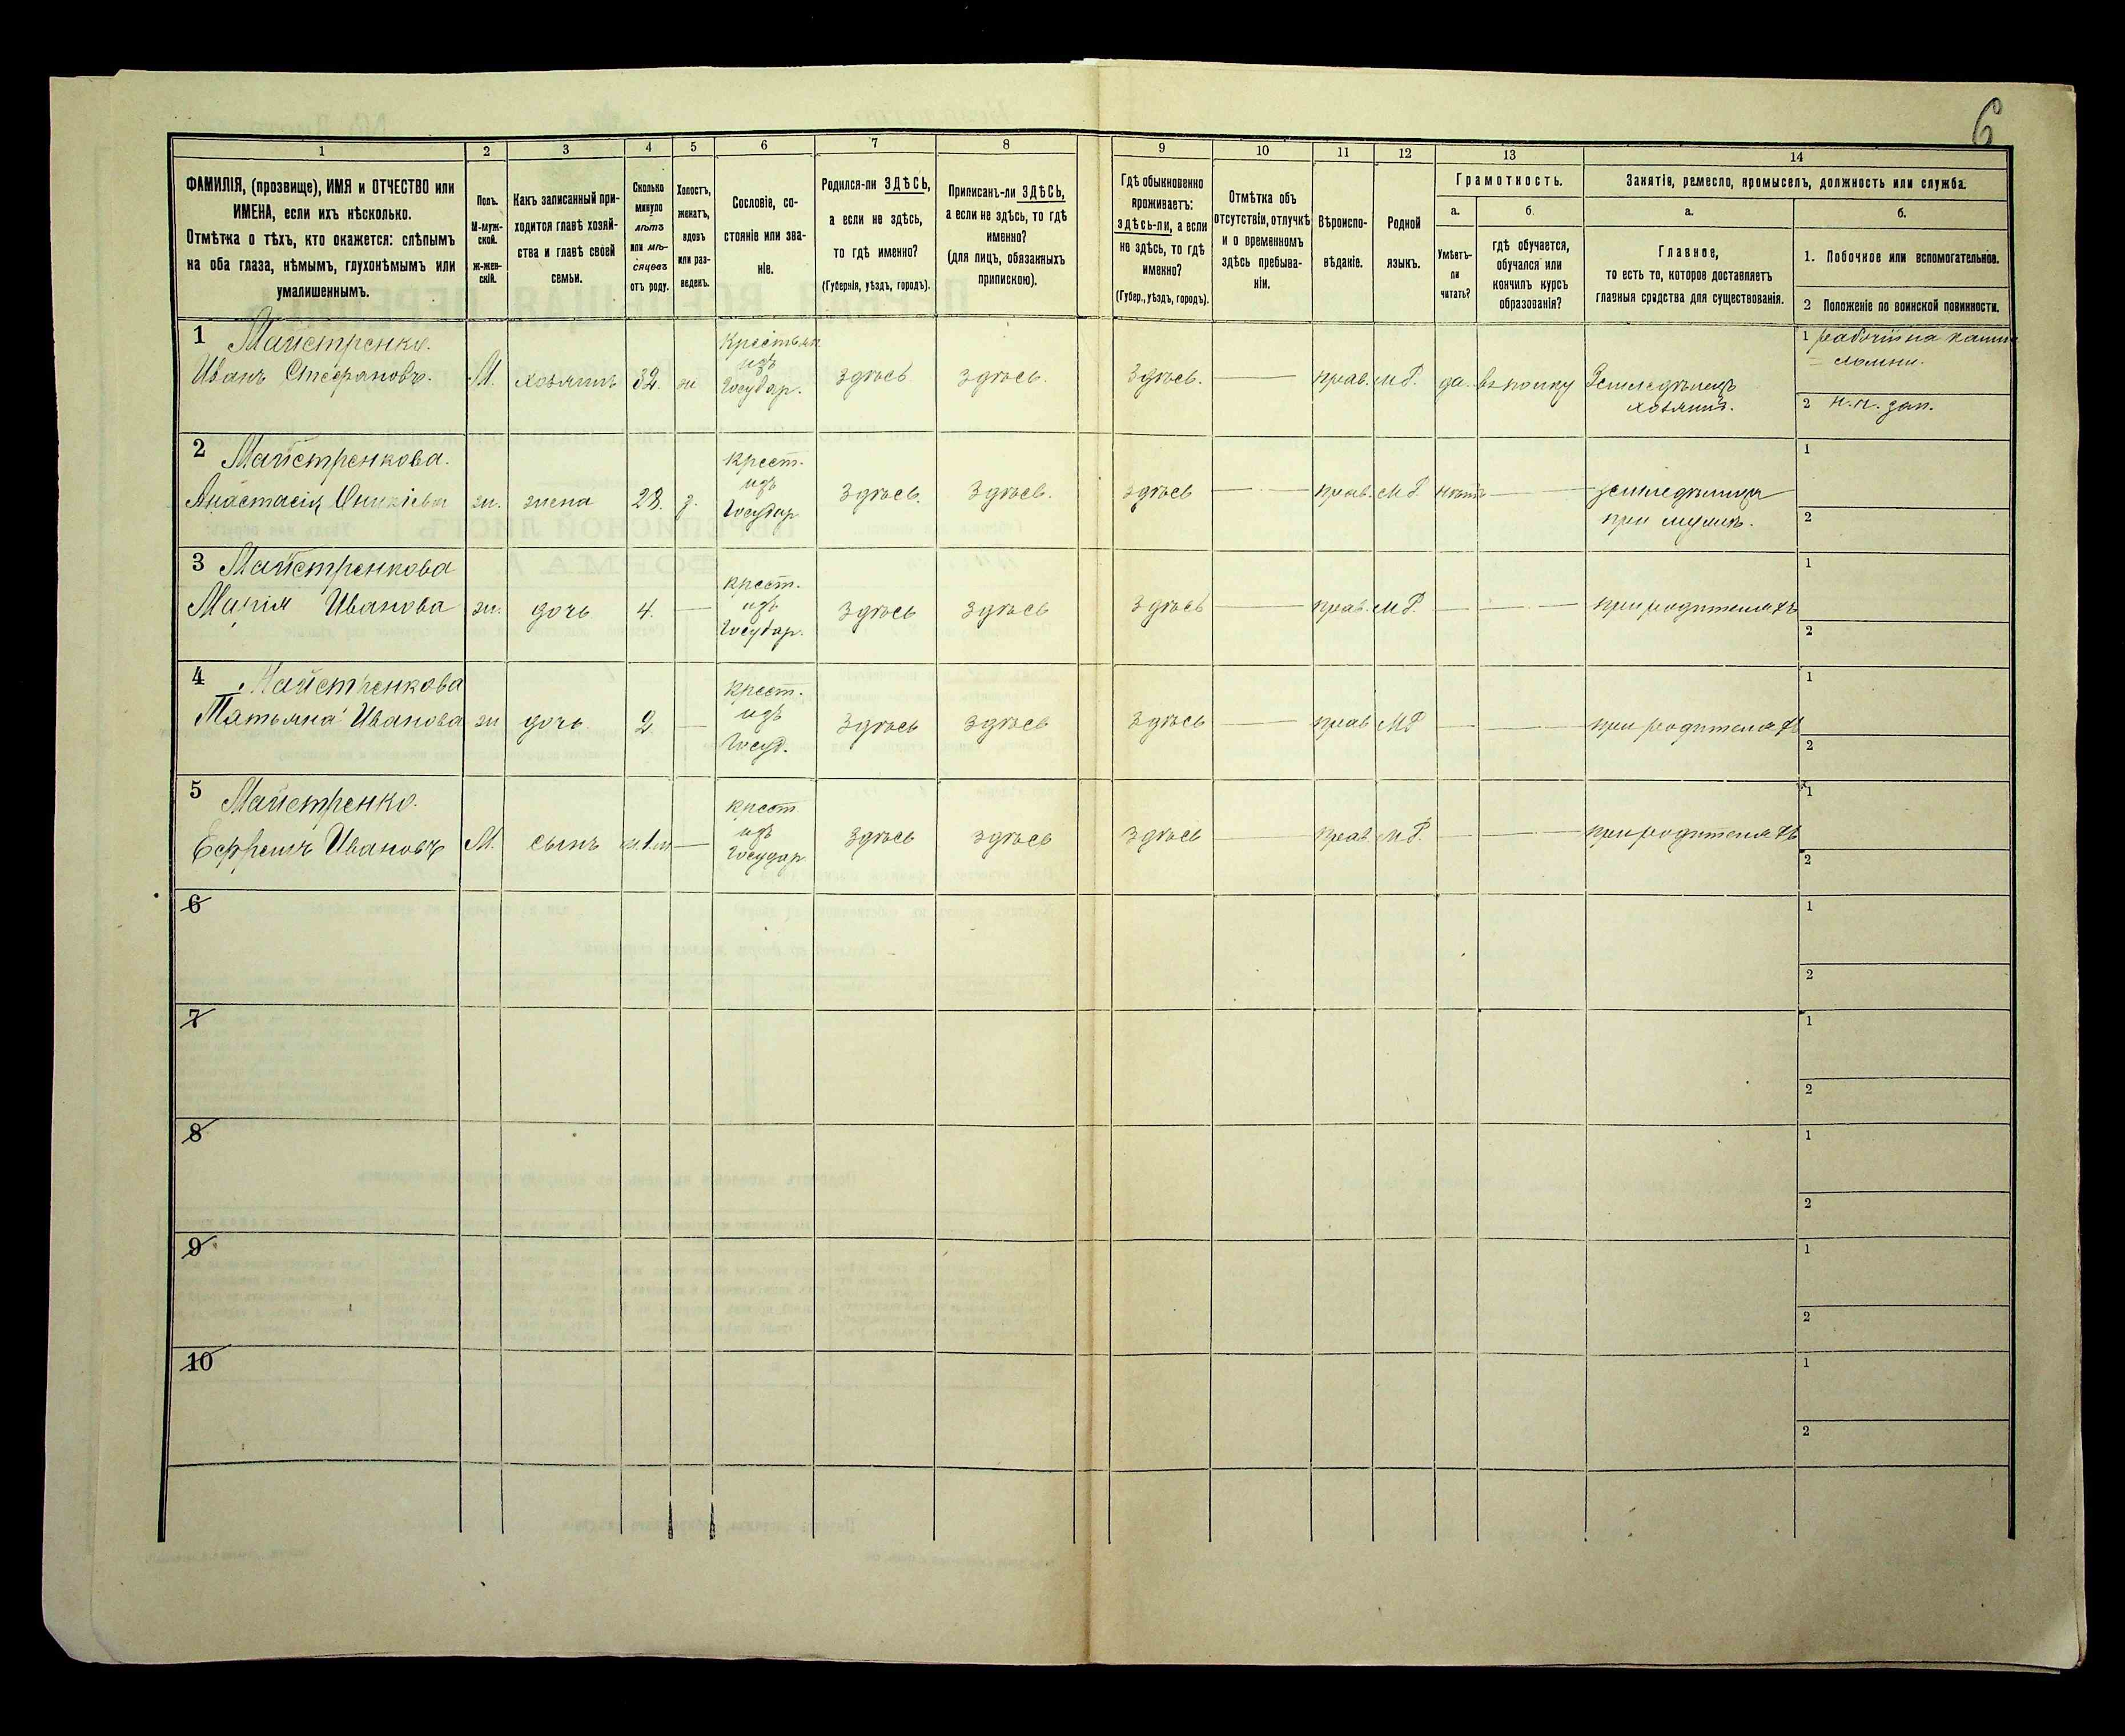 6
1 2 3 4 5 6 7 8 9 10 11 12 13 14
ФАМИЛІЯ, (прозвище), ИМЯ и ОТЧЕСТВО или
ИМЕНА, если ихъ нѣсколько.
Отмѣтка о тѣхъ, кто окажется: слѣпымъ
на оба глаза, нѣмымъ, глухонѣмымъ или
умалишеннымъ.
Полъ.
М-муж-
ской.
ж-жен-
скій.
Какъ записанный при-
ходится главѣ хозяй-
ства и главѣ своей
семьи.
Сколько
минуло
лѣтъ
или мѣ-
сяцевъ
отъ роду.
Холостъ,
женатъ,
вдовъ
или раз-
веденъ.
Сословіе, со-
стояніе или зва-
ніе.
Родился-ли ЗДѢСЬ,
а если не здѣсь,
то гдѣ именно?
(Губернія, уѣздъ, городъ).
Приписанъ-ли ЗДѢСЬ,
а если не здѣсь, то гдѣ
именно?
(для лицъ, обязанныхъ
припискою).
Гдѣ обыкновенно
проживаетъ:
здѣсь-ли, а если
не здѣсь, то гдѣ
именно?
(Губер., уѣздъ, городъ).
Отмѣтка объ
отсутствіи, отлучкѣ
и о временномъ
здѣсь пребыва-
ніи.
Вѣроиспо-
вѣданіе.
Родной
языкъ.
Грамотность.
а.
Умѣетъ-
ли
читать?
б.
гдѣ обучается,
обучался или
кончилъ курсъ
образованія?
Занятіе, ремесло, промыселъ, должность или служба.
а.
Главное,
то есть то, которое доставляетъ
главныя средства для существованія.
б.
1. Побочное или вспомогательное.
2 Положеніе по воинской повинности.
1 Майстренко. Крестьян 1 рабочий на камне
Иванъ Стефановъ. М. хозяинъ 32. ж изъ здѣсь здѣсь. Здѣсь. — прав. М.Р. да. Земледѣлецъ ломни.
Государ. хозяинъ. 2 н.п. зап.
2 Майстренкова. крест. 1
Анастасія ж. жена 28. з. изъ Здѣсь. Здѣсь. здѣсь — прав. М.Р. нѣтъ —
Государ при мужѣ. 2
3 Майстренкова крест. 1
Марія Иванова ж. дочь 4. — изъ Здѣсь здѣсь Здѣсь — прав. М.Р. — — при родителяхъ
Государ. 2
4 Майстренкова крест. 1
Татьяна Иванова ж дочь 2 — изъ Здѣсь здѣсь Здѣсь — прав М.Р — — при родителяхъ
Госуд. 2
5 Майстренко. крест 1
Ефремъ Ивановъ М. сынъ — изъ Здѣсь здѣсь Здѣсь — прав. М.Р. — — при родителяхъ
Государ 2
6 1
2
7 1
2
8 1
2
9 1
2
10 1
2